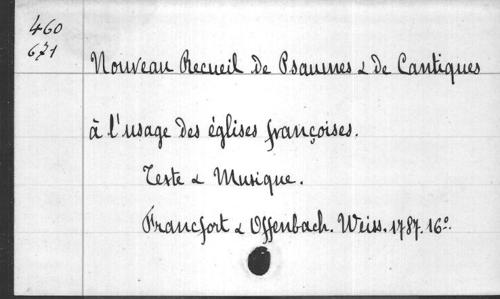 460
671
Nouveau Recueil de Psaumes & de Cantiques
à l'usage des églises françoises.
Texte & Musique.
Francfort & Offenbach. Weiss. 1787. 16º.